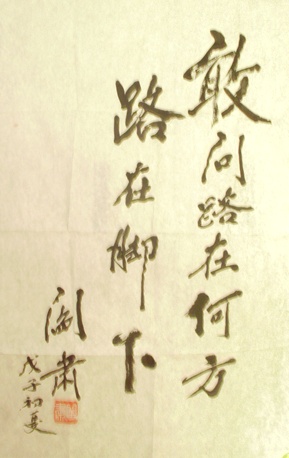 敢问路在何方
路在脚下
阎肃
戊子初夏